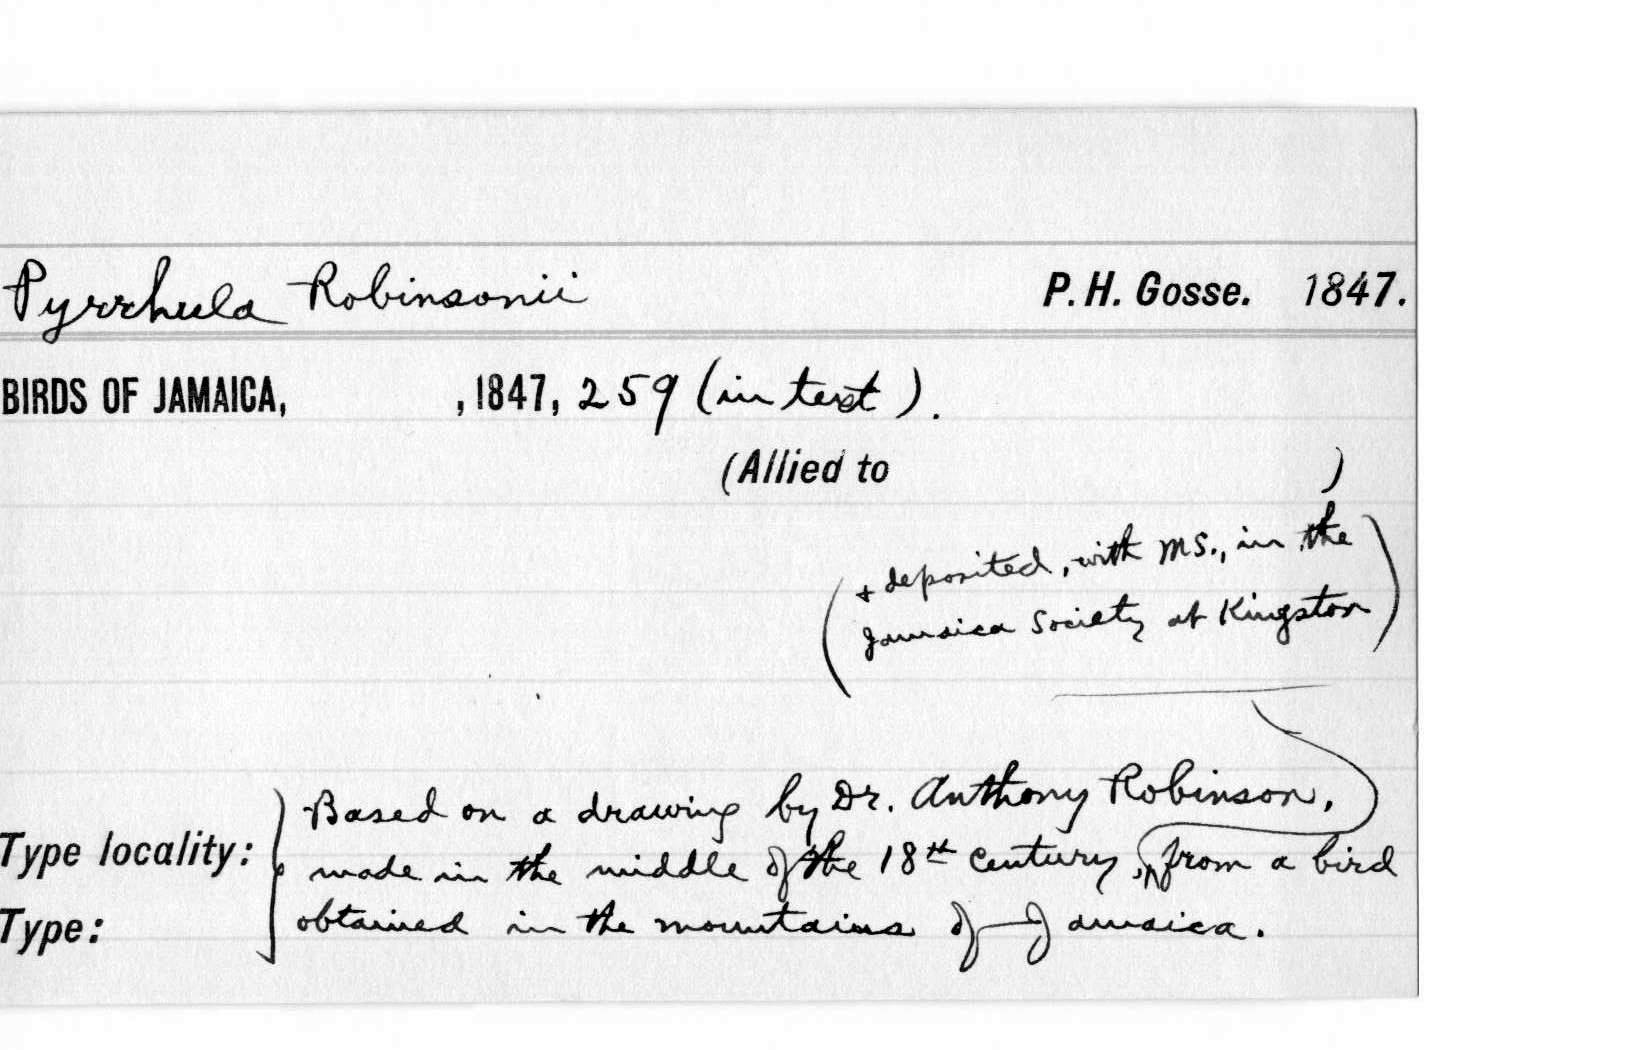 Pyrrhula Robinsonii P. H. Gosse. 1847.
BIRDS OF JAMAICA, , 1847, 259 (in text).
(Allied to )
(+ deposited, with MS., in the
Jamaica Society at Kingston)
Based on a drawing by Dr. Anthony Robinson,
Type locality: made in the middle of the 18th century, from a bird
Type: obtained in the mountains of Jamaica.